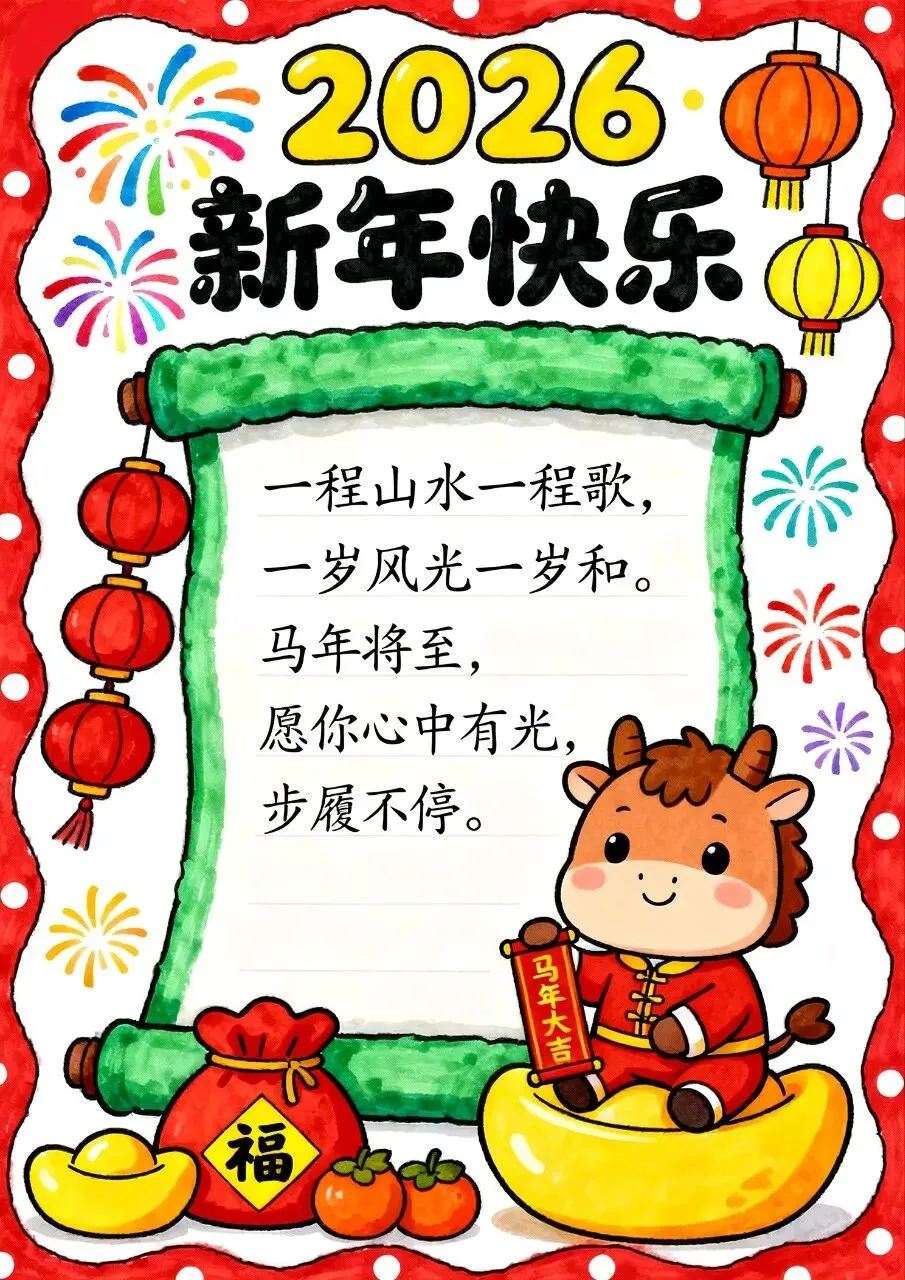 2026
新年快乐
一程山水一程歌，
一岁风光一岁和。
马年将至，
愿你心中有光，
步履不停。
马年大吉
福